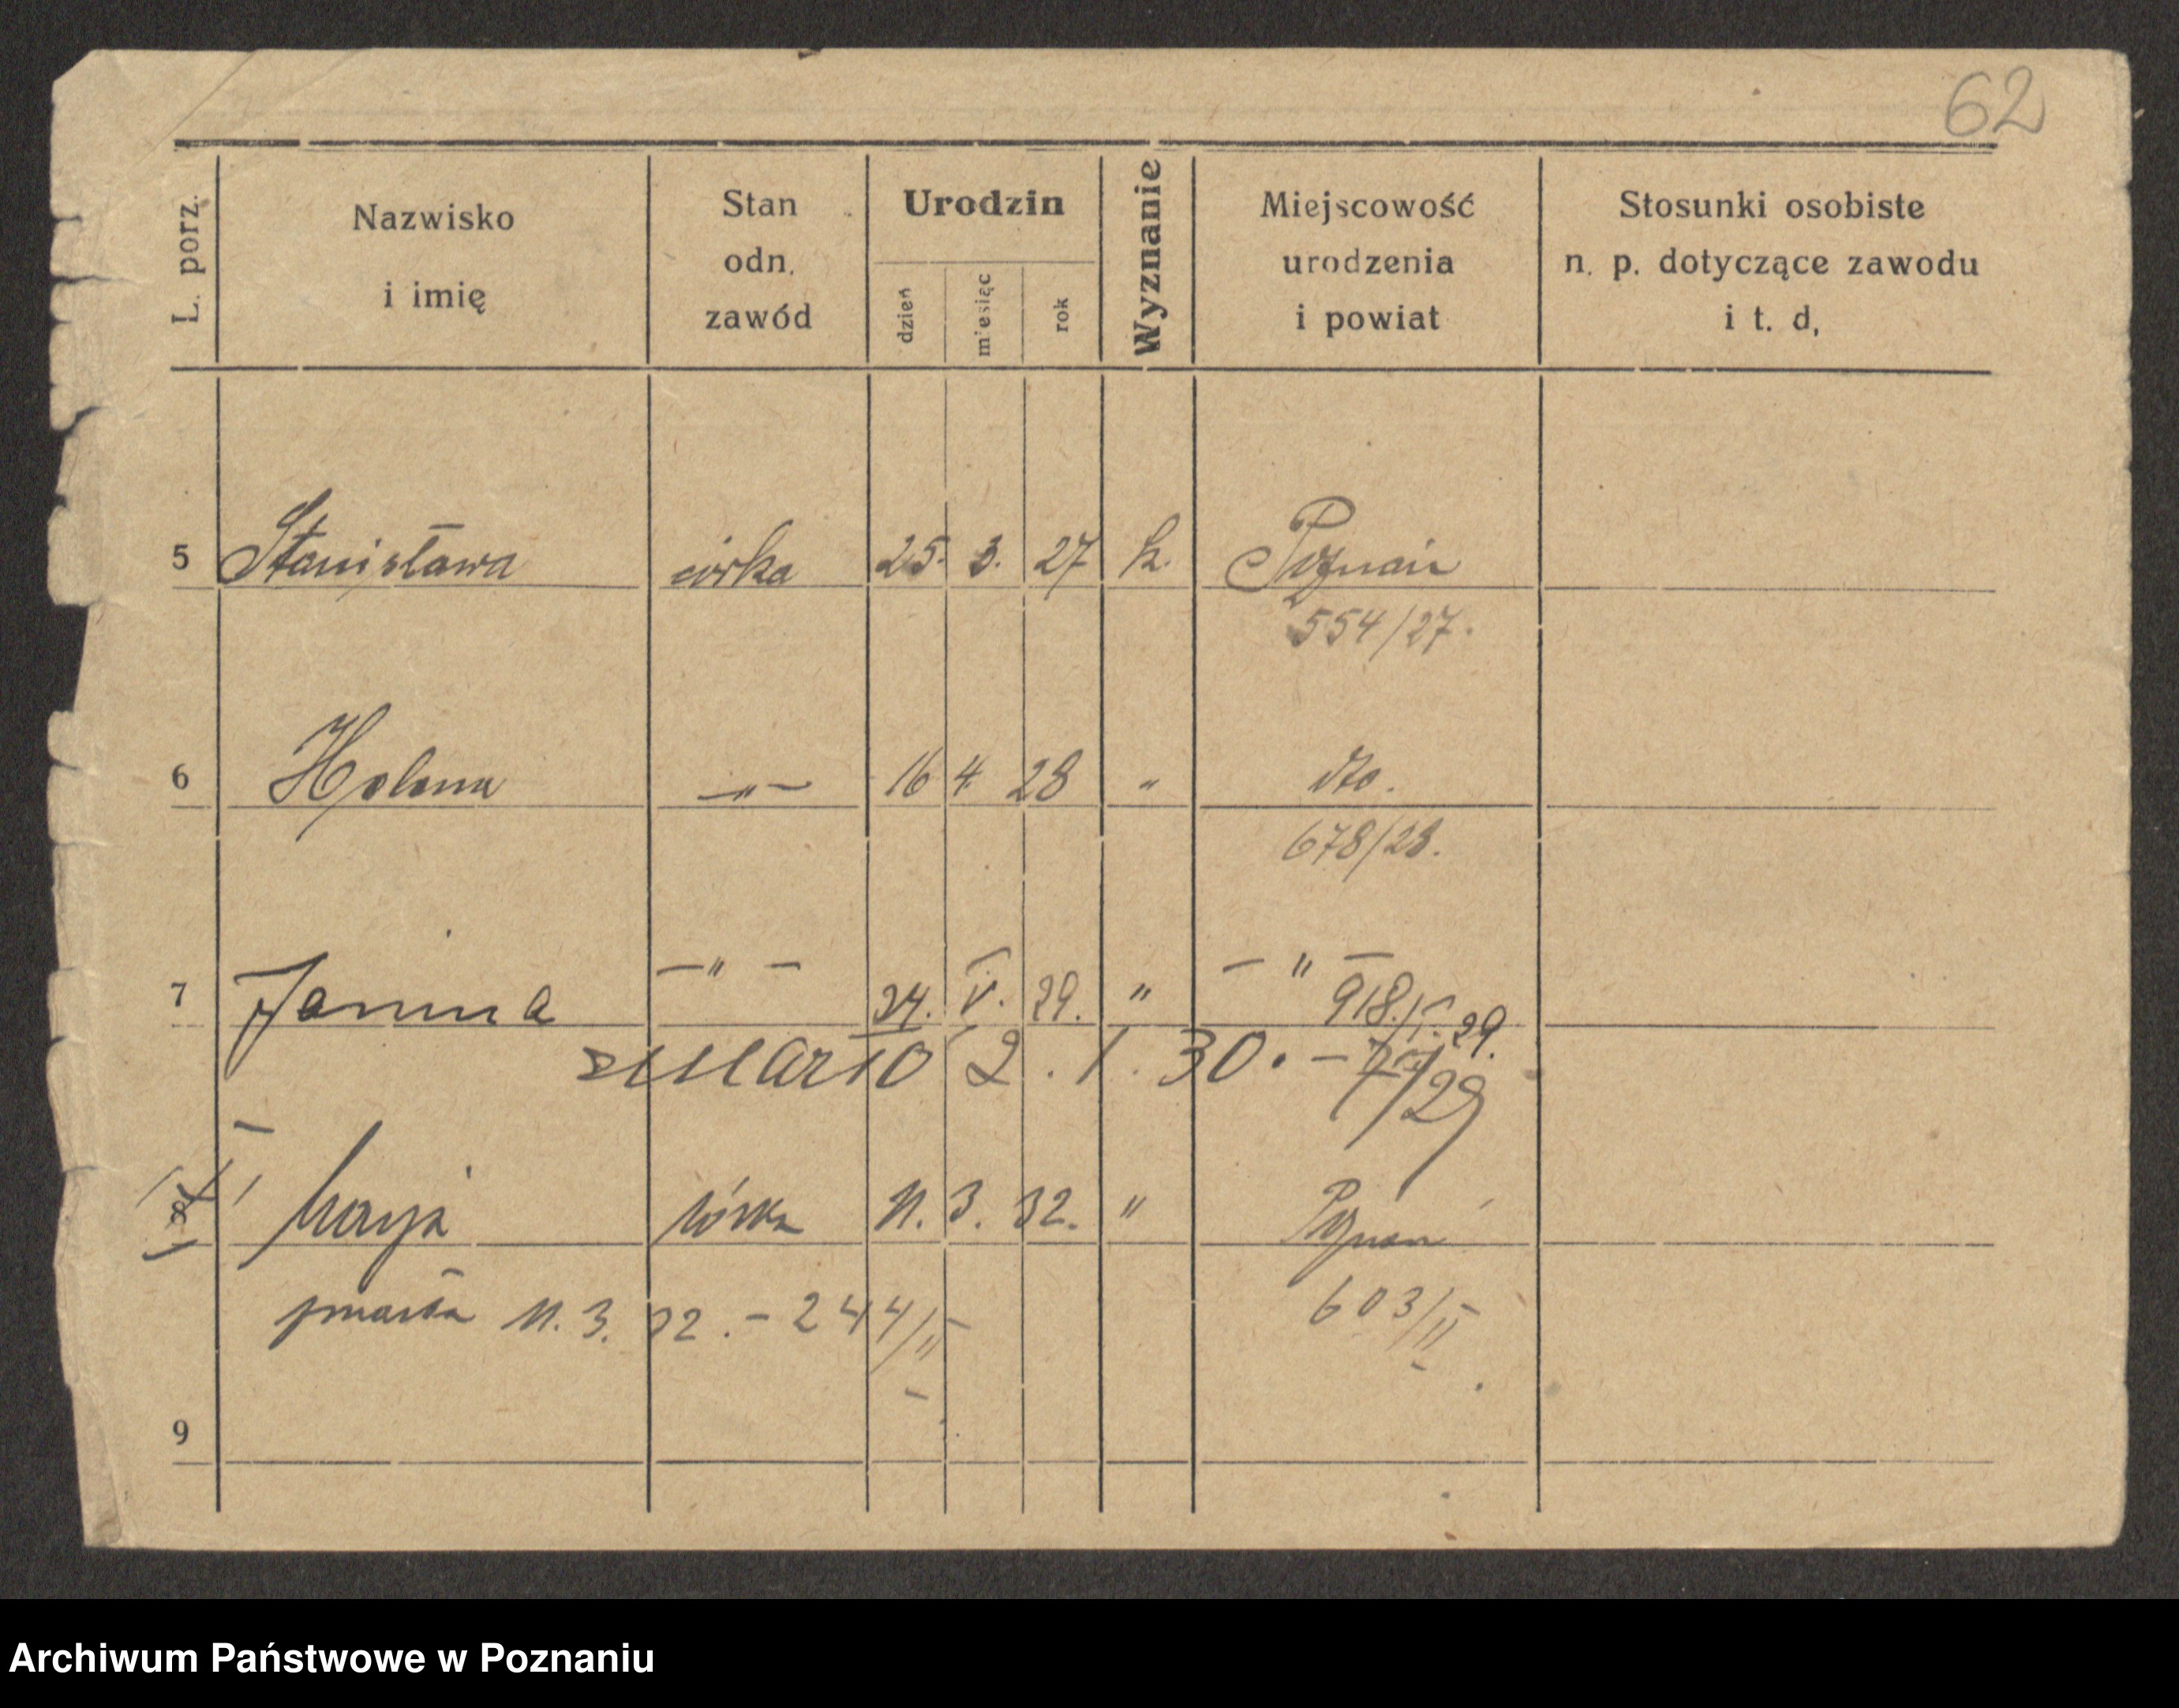 62
L. porz.
Nazwisko
i imię
Stan
odn.
zawód
Urodzin
dzień
miesięc
rok
Wyznanie
Miejscowość
urodzenia
i powiat
Stosunki osobiste
n. p. dotyczące zawodu
i t. d.
5 Stanisława córka 25. 3. 27 k. Poznań
554/27.
6 Helena —"— 16 4. 28 " dto.
678/28.
7 Janina —"— 24. V. 29. " —"—
918. V. 29.
zmarło 2. 1. 30. –
8 Marja córka 11. 3. 32. " Poznań
zmarła 11. 3. 32. – 244/II
603/II
9
Archiwum Państwowe w Poznaniu